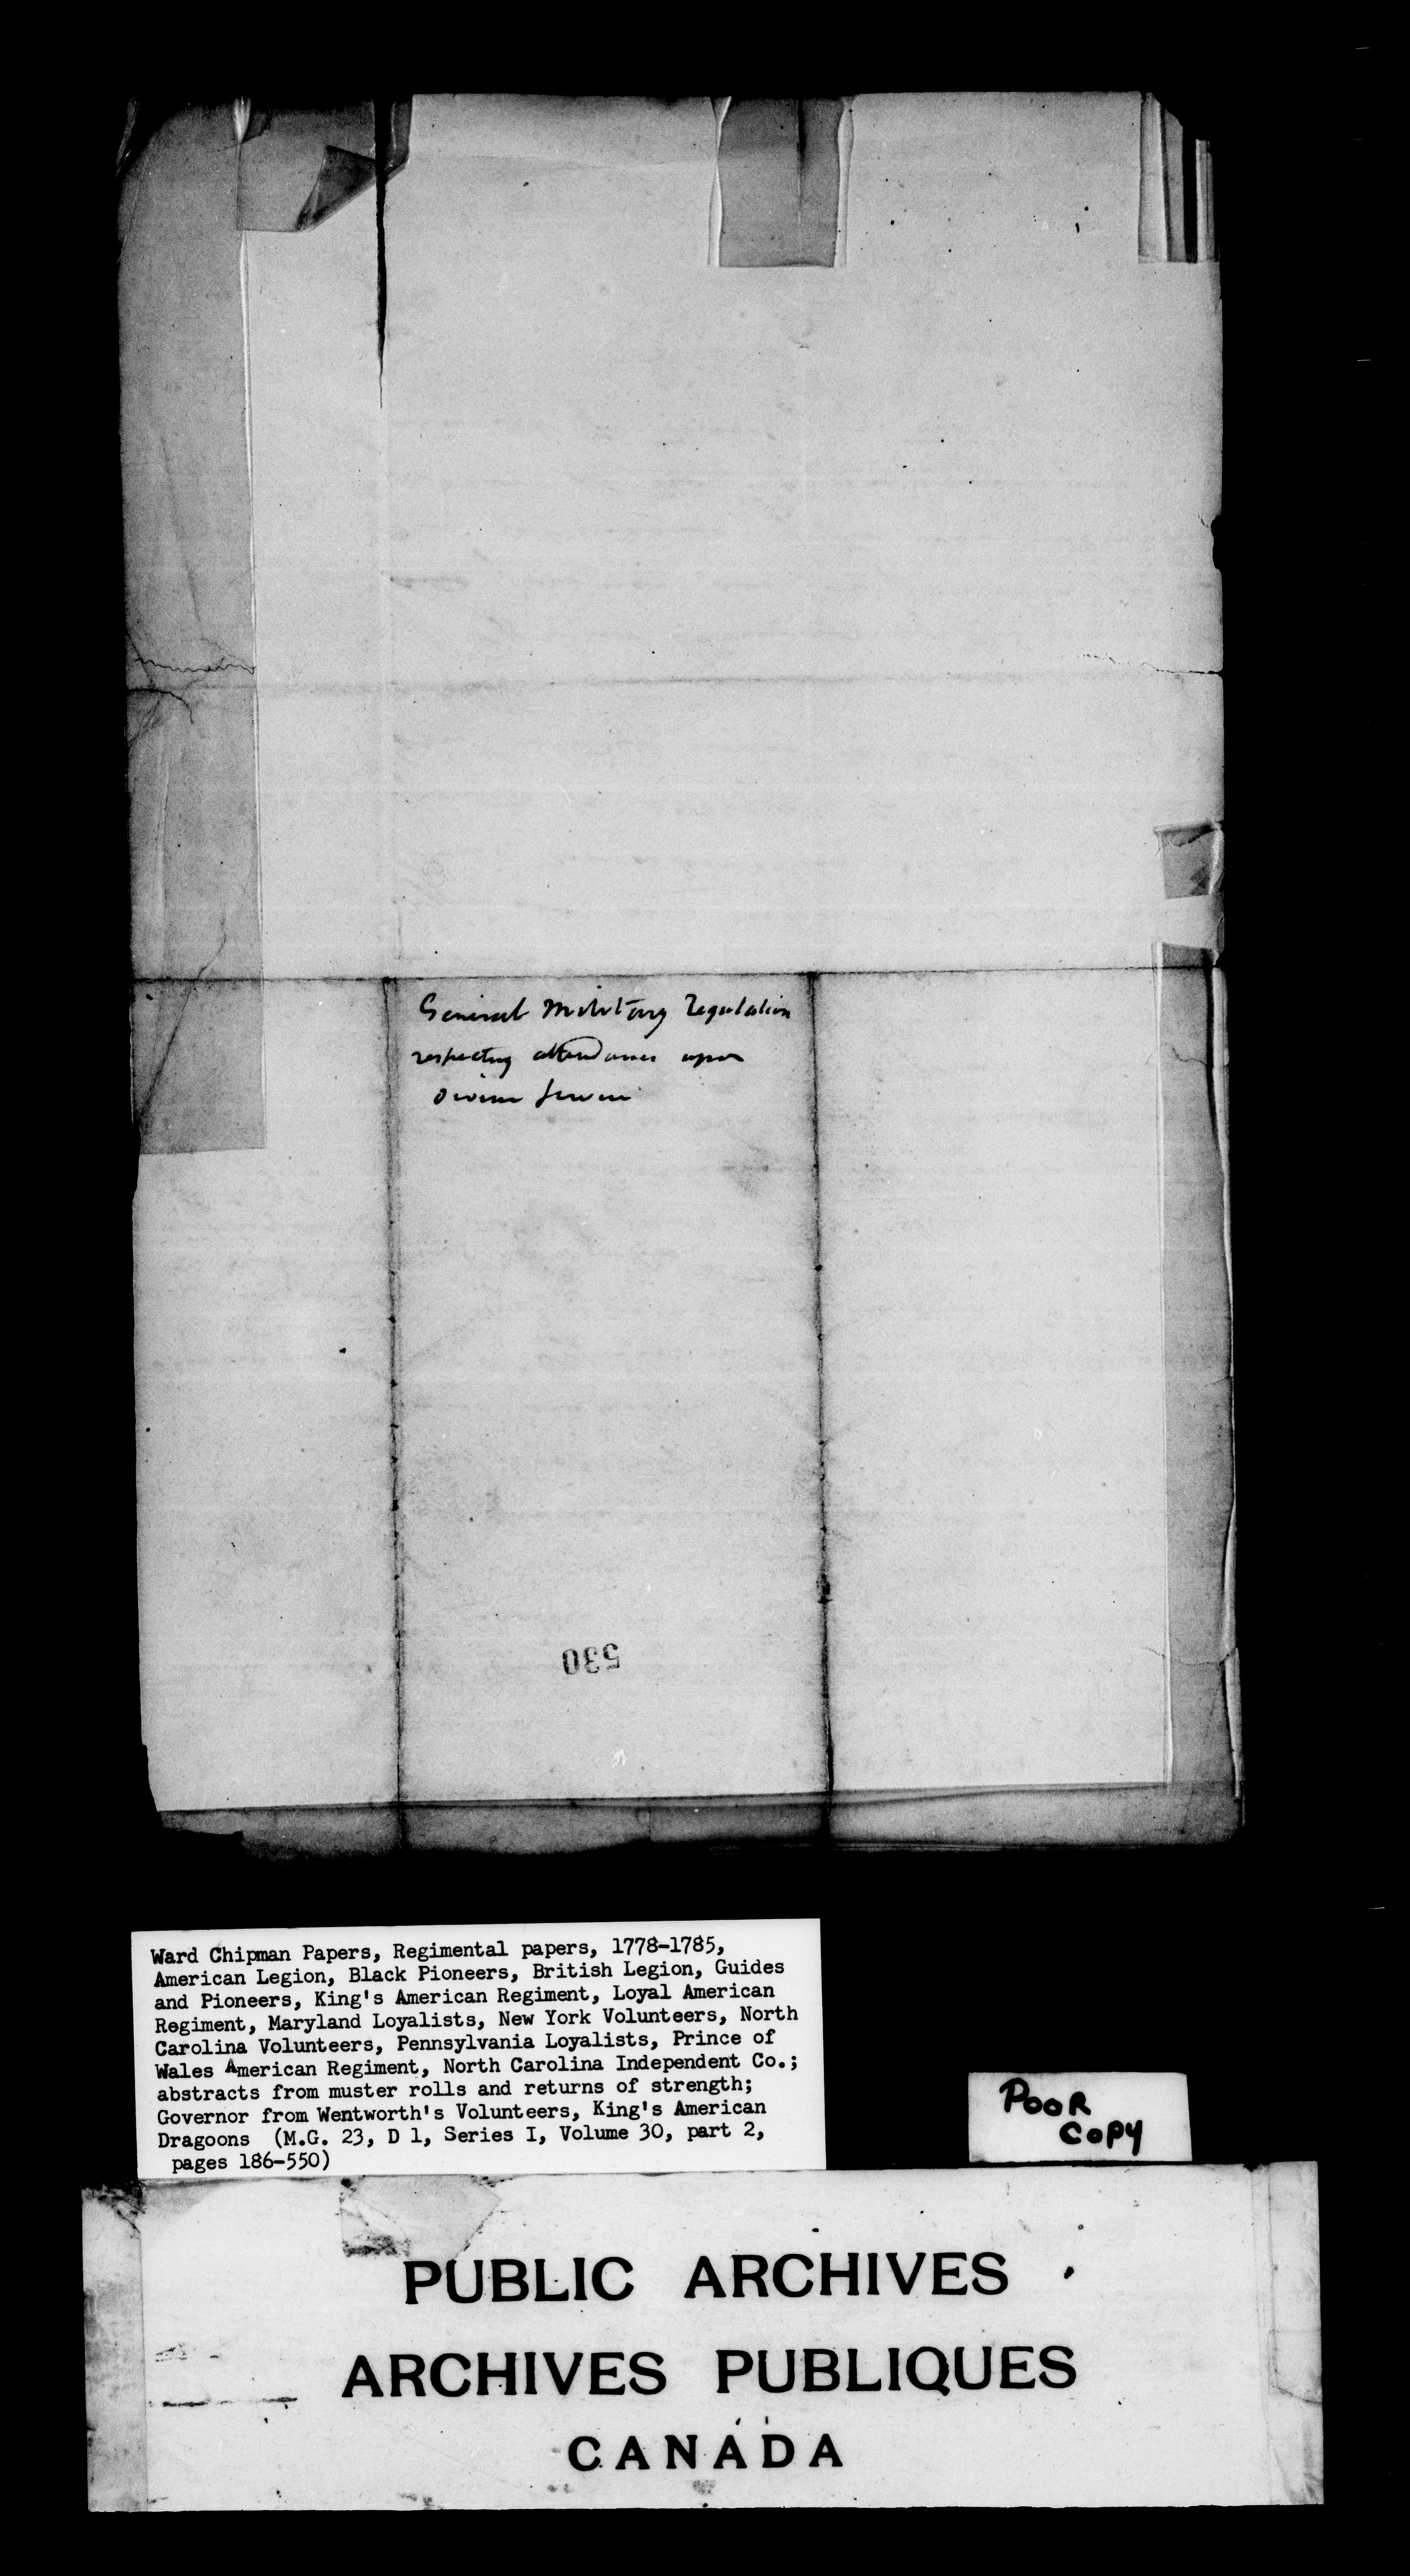 General Military Regulation
respecting attendance upon
Divine Service
530
Ward Chipman Papers, Regimental papers, 1778-1785,
American Legion, Black Pioneers, British Legion, Guides
and Pioneers, King's American Regiment, Loyal American
Regiment, Maryland Loyalists, New York Volunteers, North
Carolina Volunteers, Pennsylvania Loyalists, Prince of
Wales American Regiment, North Carolina Independent Co.;
abstracts from muster rolls and returns of strength;
Governor from Wentworth's Volunteers, King's American
Dragoons (M.G. 23, D 1, Series I, Volume 30, part 2,
pages 186-550)
POOR
COPY
PUBLIC ARCHIVES
ARCHIVES PUBLIQUES
CANADA